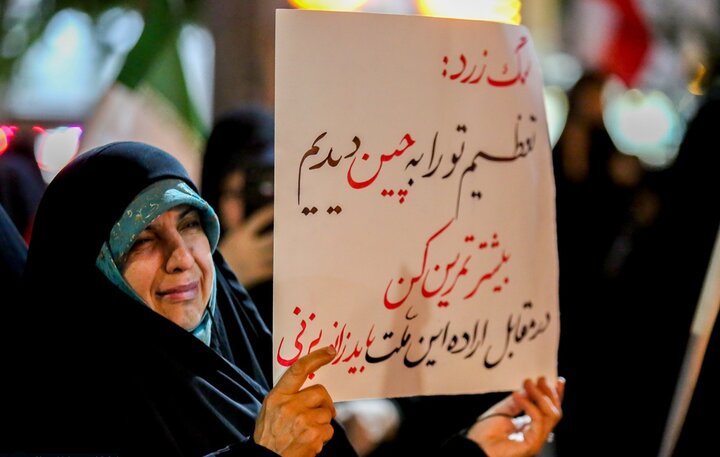 سگ زرد:
تعظیم تو را به چین دیدیم
بیشتر تمرین کن
در مقابل اراده این ملت باید زانو بزنی